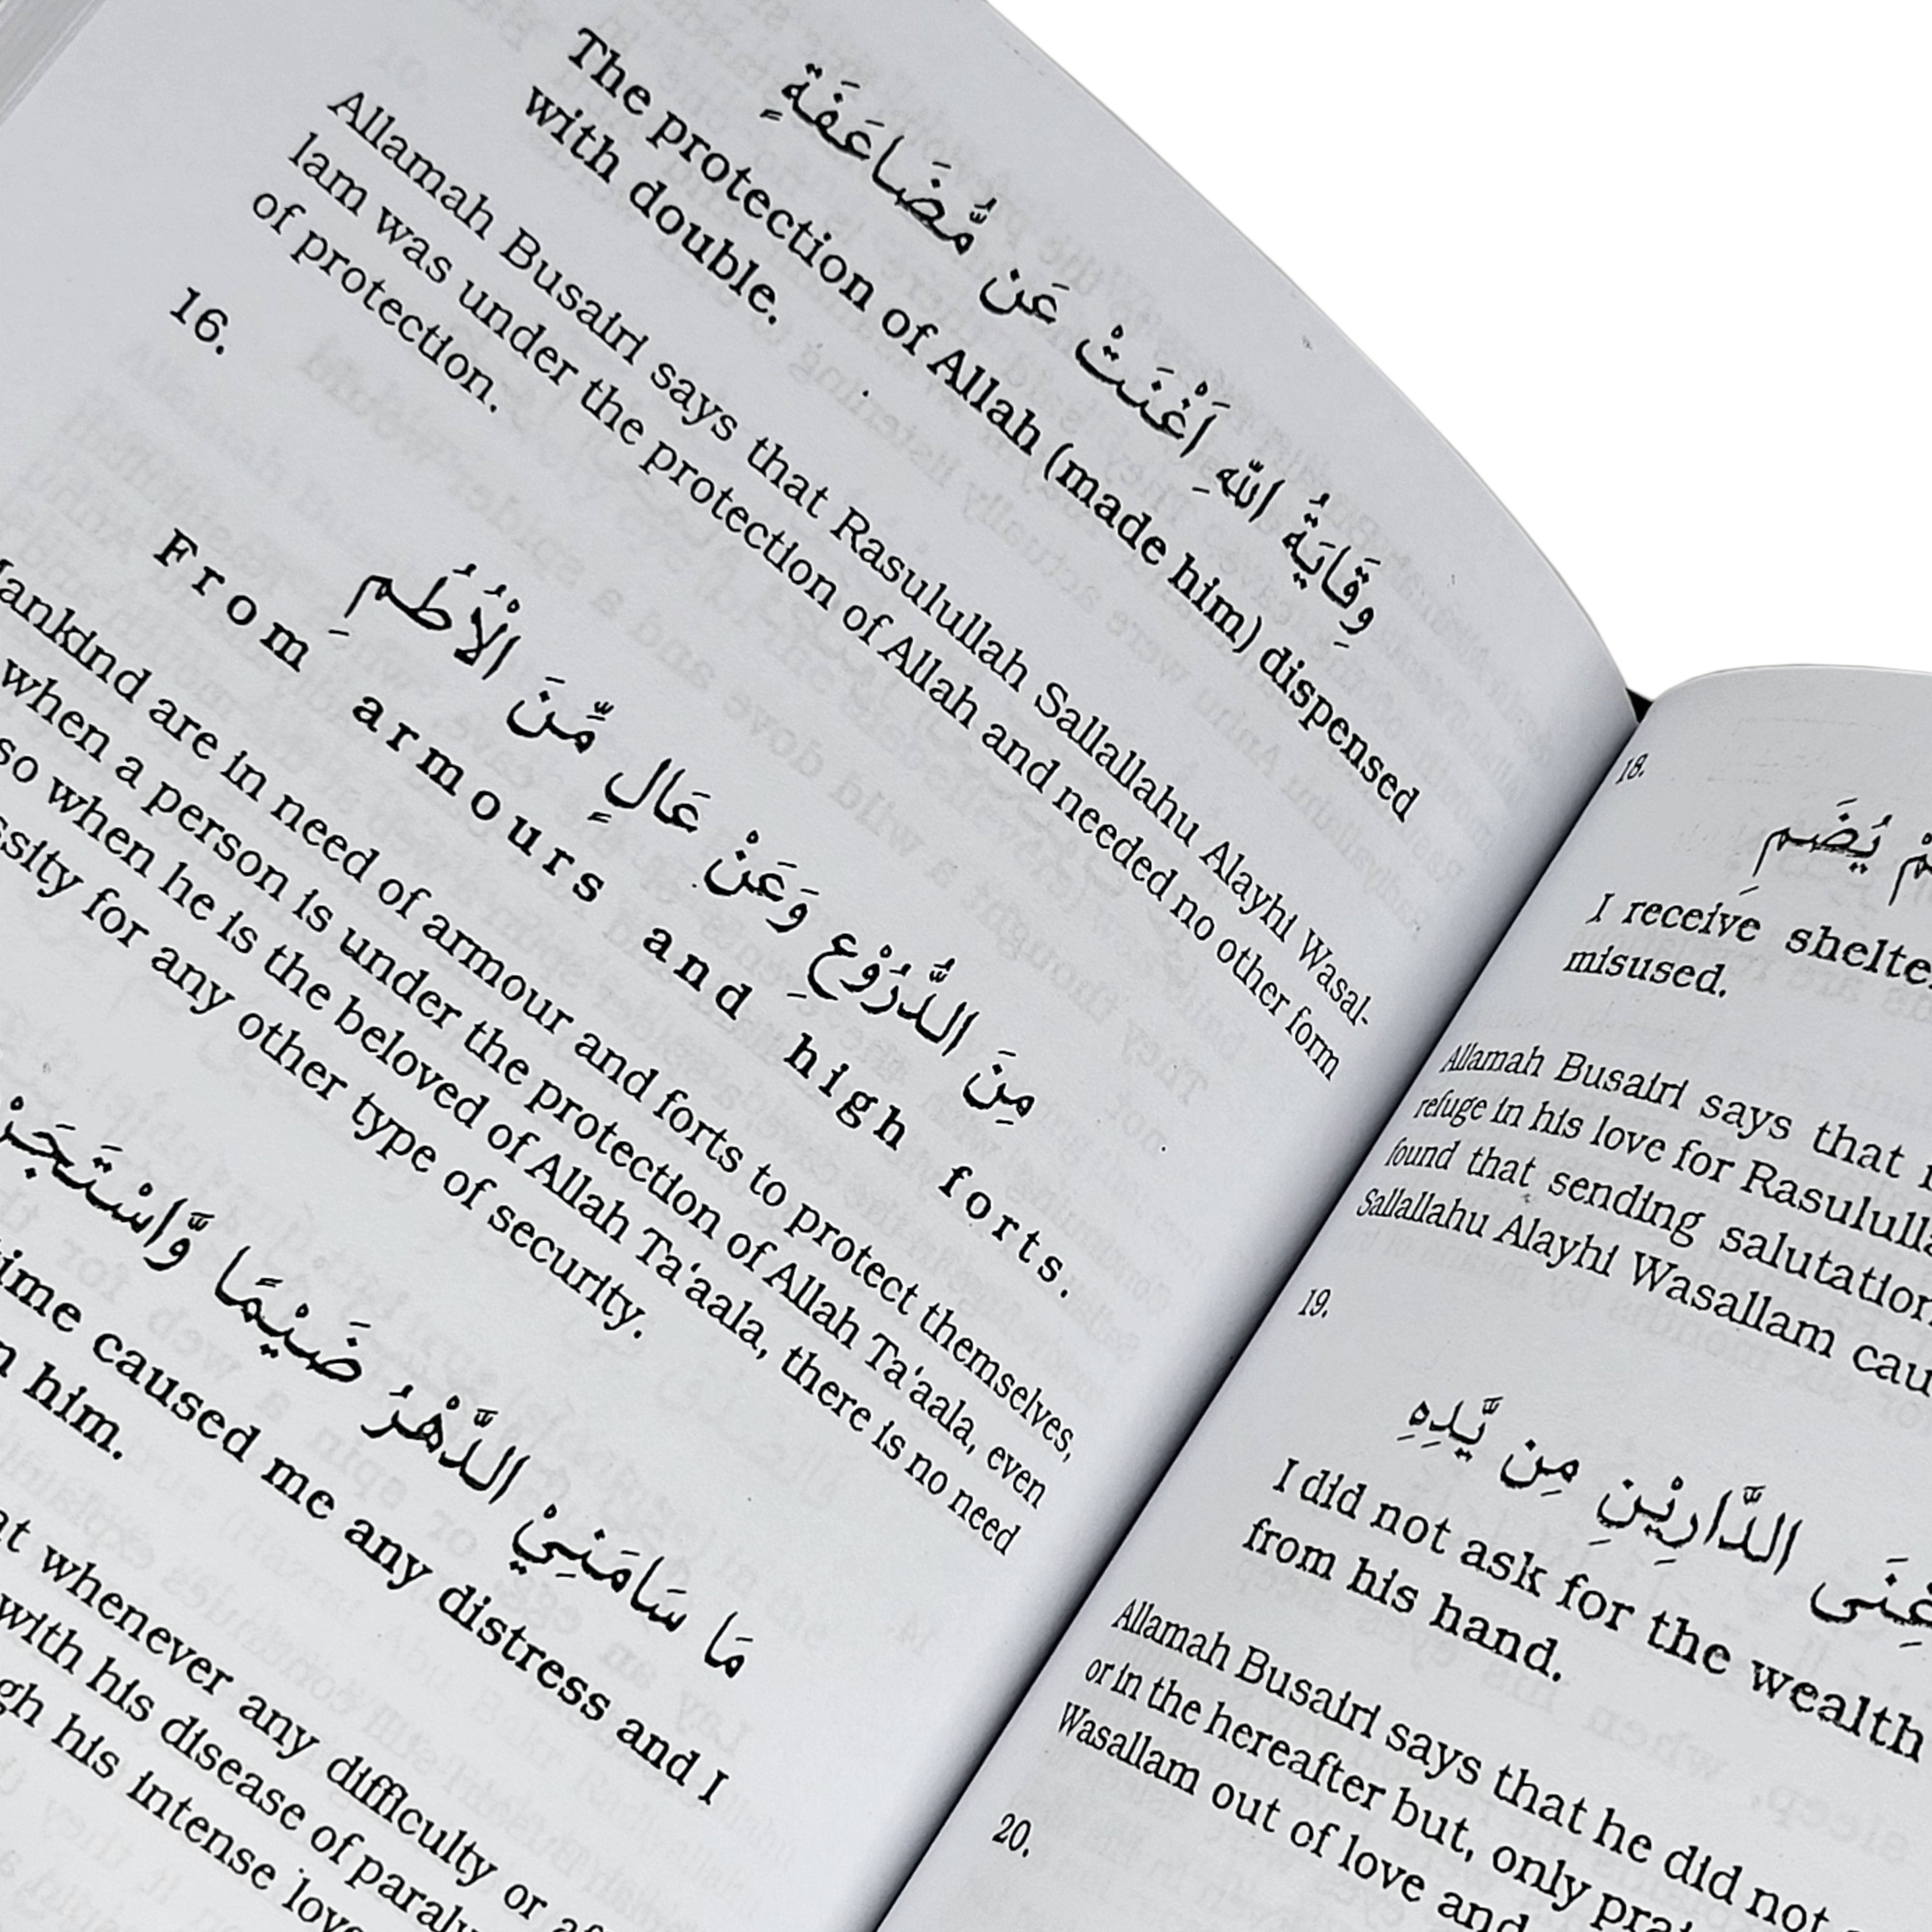 وِقَايَةُ اللّٰهِ اَغْنَتْ عَن مُّضَاعَفَةٍ
The protection of Allah (made him) dispensed
with double.
Allamah Busairi says that Rasulullah Sallallahu Alayhi Wasal-
lam was under the protection of Allah and needed no other form
of protection.
16.
مِنَ الدُّرُوْعِ وَعَنْ عَالٍ مِّنَ الْاُطُمِ
From armours and high forts.
ankind are in need of armour and forts to protect themselves,
when a person is under the protection of Allah Ta'aala, even
so when he is the beloved of Allah Ta'aala, there is no need
ssity for any other type of security.
مَا سَامَنِيْ الدَّهْرُ ضَيْمًا وَّاسْتَجَرْ
ime caused me any distress and I
n him.
at whenever any difficulty or af
with his disease of paraly
gh his intense love
18.
يُضَمِ
I receive shelte
misused.
Allamah Busairi says that
refuge in his love for Rasululla
found that sending salutation
Sallallahu Alayhi Wasallam cau
19.
غِنَى الدَّارَيْنِ مِن يَّدِهِ
I did not ask for the wealth
from his hand.
Allamah Busairi says that he did not
or in the hereafter but, only prai
Wasallam out of love and
20.